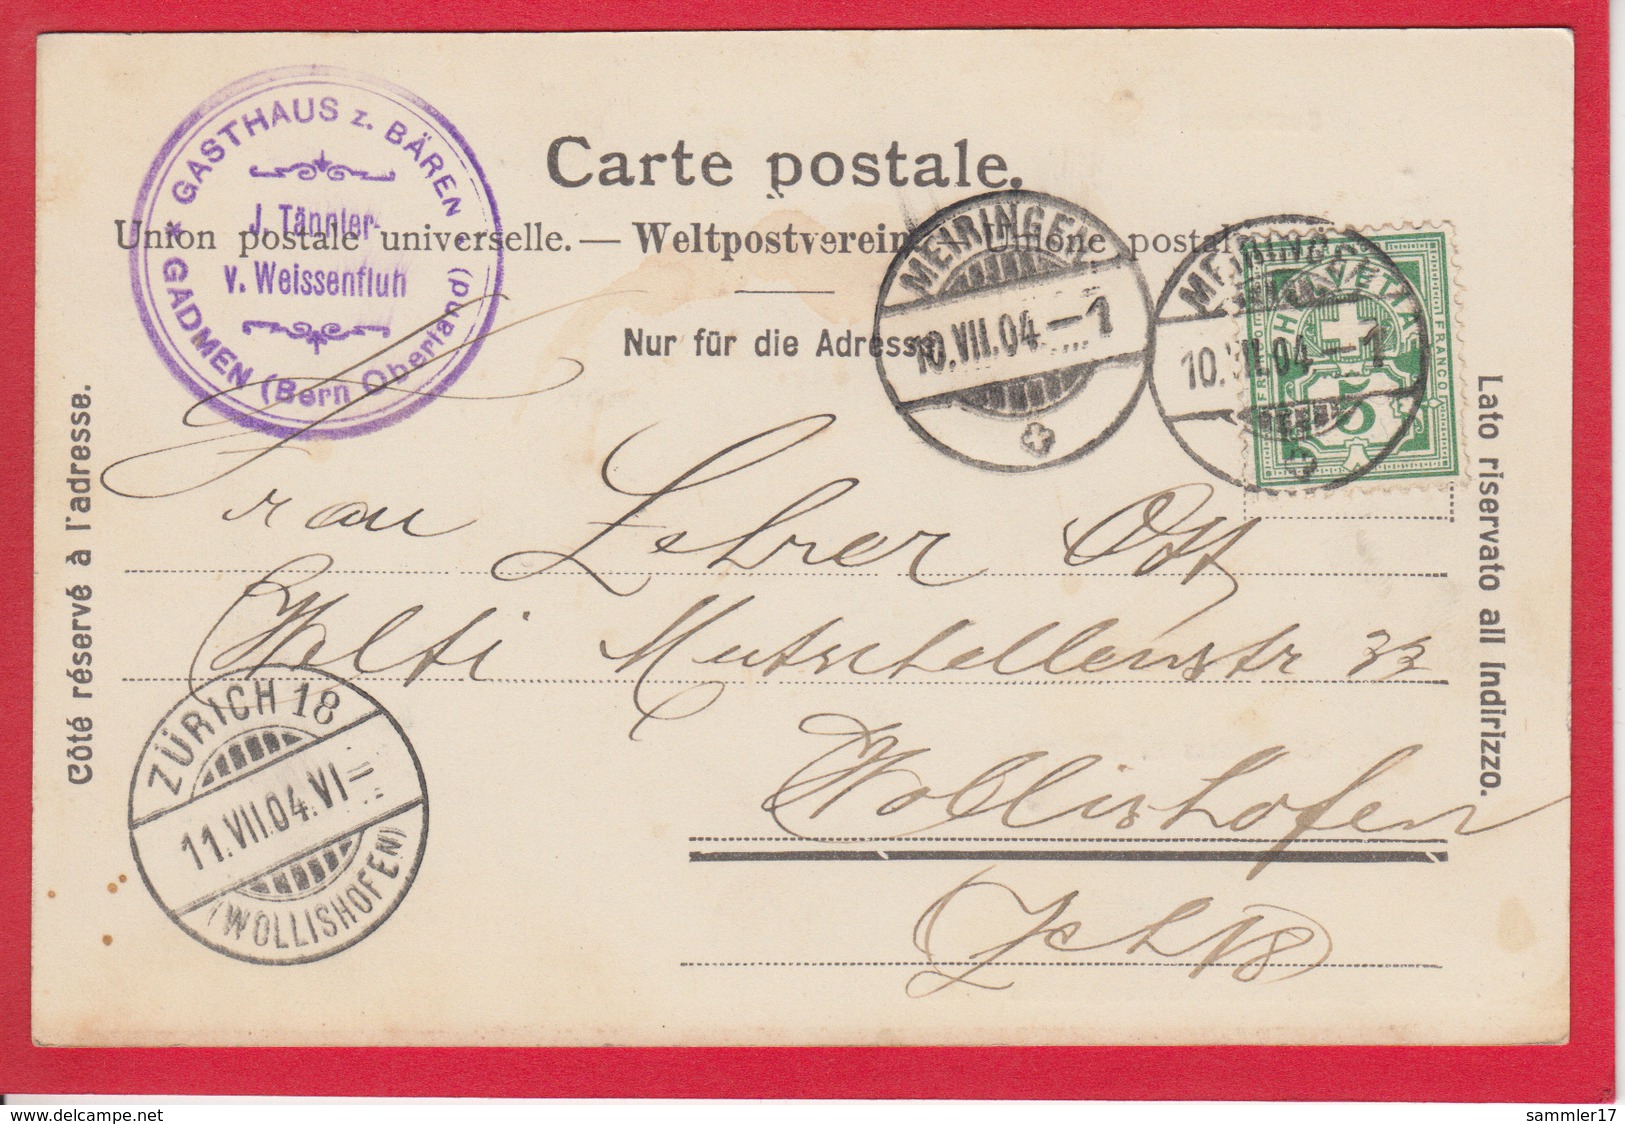 GASTHAUS z. BÄREN
J. Tännler-
v. Weissenfluh
GADMEN (Bern Oberland)
Carte postale.
Union postale universelle. — Weltpostverein. — Unione postale
Nur für die Adresse
MEIRINGEN
10.VII.04 – 1
MEIRINGEN
10.VII.04 – 1
HELVETIA
FRANCO
5
Côté réservé à l'adresse.
Lato riservato all Indirizzo.
Frau Lehrer Ott
Welti Mutschellenstr 33
Wollishofen
ZÜRICH 18
11.VII.04.VI–
(WOLLISHOFEN)
delcampe.net
sammler17